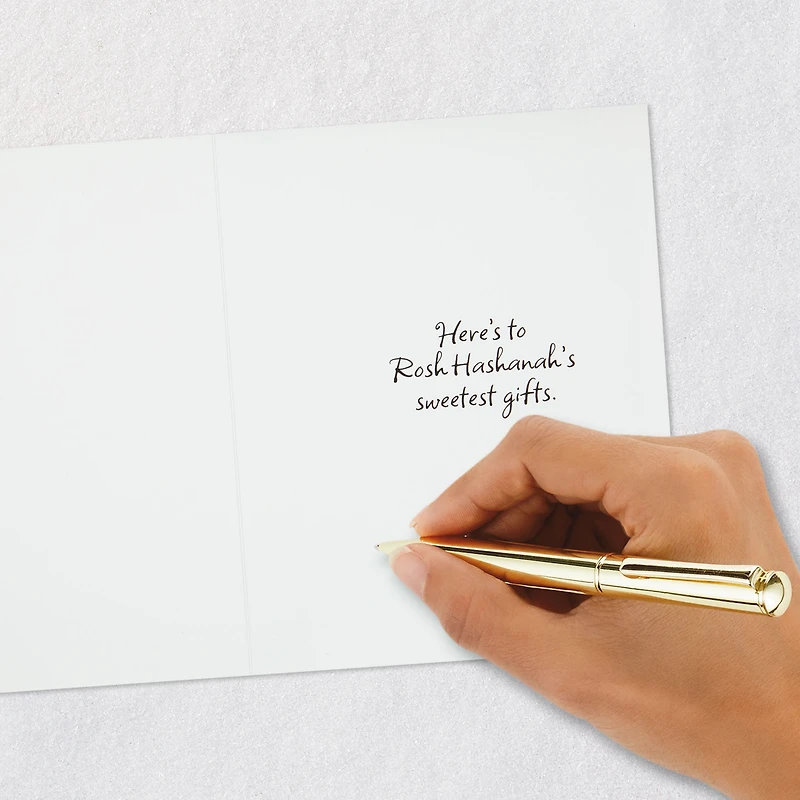 Here's to
Rosh Hashanah's
sweetest gifts.